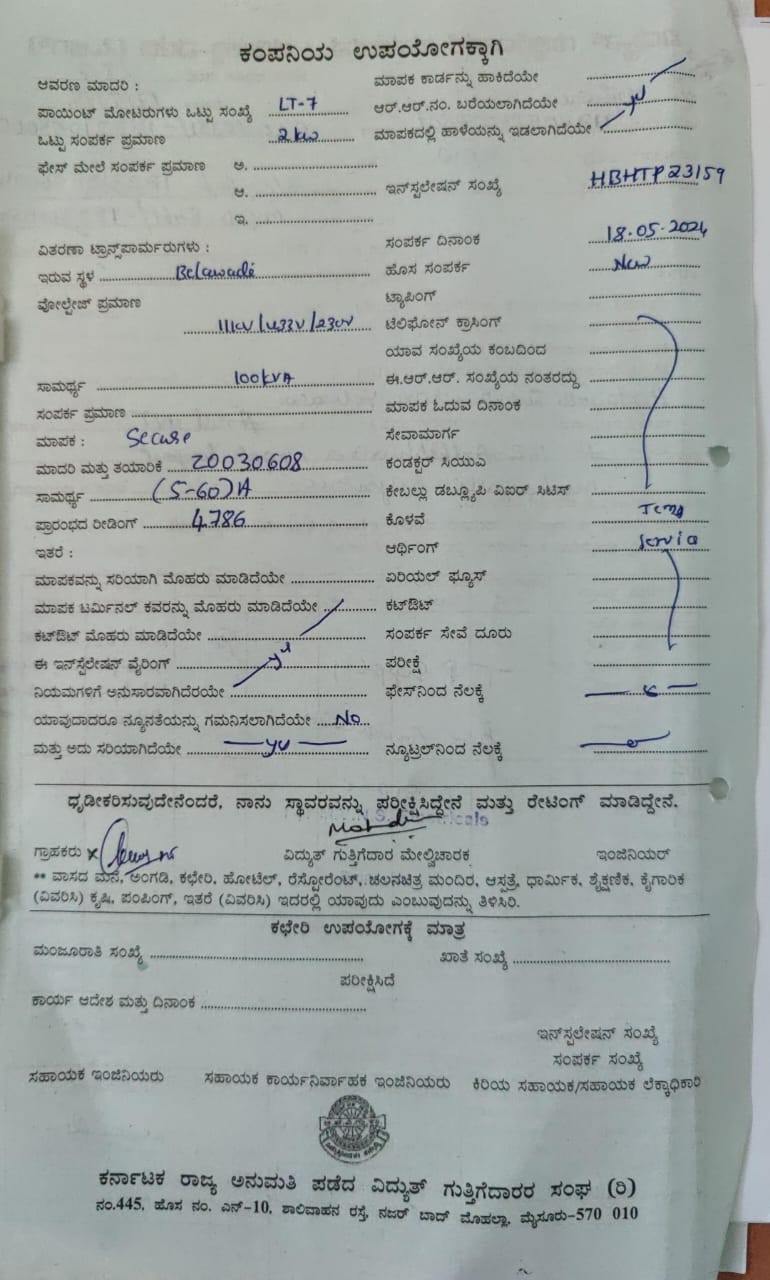 ಕಂಪನಿಯ ಉಪಯೋಗಕ್ಕಾಗಿ
ಆವರಣ ಮಾದರಿ :
ಪಾಯಿಂಟ್ ಮೋಟರುಗಳು ಒಟ್ಟು ಸಂಖ್ಯೆ LT-7
ಒಟ್ಟು ಸಂಪರ್ಕ ಪ್ರಮಾಣ 2kw
ಫೇಸ್ ಮೇಲೆ ಸಂಪರ್ಕ ಪ್ರಮಾಣ ಅ.
ಆ.
ಇ.
ವಿತರಣಾ ಟ್ರಾನ್ಸ್‌ಪಾರ್ಮರುಗಳು :
ಇರುವ ಸ್ಥಳ Belawadi
ವೋಲ್ಟೇಜ್ ಪ್ರಮಾಣ
11kV/433V/230V
ಸಾಮರ್ಥ್ಯ 100kVA
ಸಂಪರ್ಕ ಪ್ರಮಾಣ
ಮಾಪಕ : Secure
ಮಾದರಿ ಮತ್ತು ತಯಾರಿಕೆ 20030608
ಸಾಮರ್ಥ್ಯ (5-60)A
ಪ್ರಾರಂಭದ ರೀಡಿಂಗ್ 4786
ಇತರೆ :
ಮಾಪಕವನ್ನು ಸರಿಯಾಗಿ ಮೊಹರು ಮಾಡಿದೆಯೇ
ಮಾಪಕ ಟರ್ಮಿನಲ್ ಕವರನ್ನು ಮೊಹರು ಮಾಡಿದೆಯೇ
ಕಟ್‌ಔಟ್ ಮೊಹರು ಮಾಡಿದೆಯೇ
ಈ ಇನ್‌ಸ್ಟಲೇಷನ್ ವೈರಿಂಗ್
ನಿಯಮಗಳಿಗೆ ಅನುಸಾರವಾಗಿದೆರಯೇ
ಯಾವುದಾದರೂ ನ್ಯೂನತೆಯನ್ನು ಗಮನಿಸಲಾಗಿದೆಯೇ No
ಮತ್ತು ಅದು ಸರಿಯಾಗಿದೆಯೇ
ಮಾಪಕ ಕಾರ್ಡನ್ನು ಹಾಕಿದೆಯೇ
ಆರ್.ಆರ್.ನಂ. ಬರೆಯಲಾಗಿದೆಯೇ
ಮಾಪಕದಲ್ಲಿ ಹಾಳೆಯನ್ನು ಇಡಲಾಗಿದೆಯೇ
ಇನ್‌ಸ್ಟಲೇಷನ್ ಸಂಖ್ಯೆ HBHTP23159
ಸಂಪರ್ಕ ದಿನಾಂಕ 18.05.2024
ಹೊಸ ಸಂಪರ್ಕ New
ಟ್ಯಾಪಿಂಗ್
ಟೆಲಿಫೋನ್ ಕ್ರಾಸಿಂಗ್
ಯಾವ ಸಂಖ್ಯೆಯ ಕಂಬದಿಂದ
ಈ.ಆರ್.ಆರ್. ಸಂಖ್ಯೆಯ ನಂತರದ್ದು
ಮಾಪಕ ಓದುವ ದಿನಾಂಕ
ಸೇವಾಮಾರ್ಗ
ಕಂಡಕ್ಟರ್ ಸಿಯುಎ
ಕೇಬಲ್ಲು ಡಬ್ಲ್ಯೂಪಿ ವಿಐರ್ ಸಿಟಿಸ್
ಕೊಳವೆ Temp
ಆರ್ಥಿಂಗ್ Service
ಏರಿಯಲ್ ಫ್ಯೂಸ್
ಕಟ್‌ಔಟ್
ಸಂಪರ್ಕ ಸೇವೆ ದೂರು
ಪರೀಕ್ಷೆ
ಫೇಸ್‌ನಿಂದ ನೆಲಕ್ಕೆ
ನ್ಯೂಟ್ರಲ್‌ನಿಂದ ನೆಲಕ್ಕೆ
ಧೃಡೀಕರಿಸುವುದೇನೆಂದರೆ, ನಾನು ಸ್ಥಾವರವನ್ನು ಪರೀಕ್ಷಿಸಿದ್ದೇನೆ ಮತ್ತು ರೇಟಿಂಗ್ ಮಾಡಿದ್ದೇನೆ.
ಗ್ರಾಹಕರು ವಿದ್ಯುತ್ ಗುತ್ತಿಗೆದಾರ ಮೇಲ್ವಿಚಾರಕ ಇಂಜಿನಿಯರ್
** ವಾಸದ ಮನೆ, ಅಂಗಡಿ, ಕಛೇರಿ, ಹೋಟೆಲ್, ರೆಸ್ಟೋರೆಂಟ್, ಚಲನಚಿತ್ರ ಮಂದಿರ, ಆಸ್ಪತ್ರೆ, ಧಾರ್ಮಿಕ, ಶೈಕ್ಷಣಿಕ, ಕೈಗಾರಿಕೆ
(ವಿವರಿಸಿ) ಕೃಷಿ, ಪಂಪಿಂಗ್, ಇತರೆ (ವಿವರಿಸಿ) ಇದರಲ್ಲಿ ಯಾವುದು ಎಂಬುವುದನ್ನು ತಿಳಿಸಿರಿ.
ಕಛೇರಿ ಉಪಯೋಗಕ್ಕೆ ಮಾತ್ರ
ಮಂಜೂರಾತಿ ಸಂಖ್ಯೆ ಖಾತೆ ಸಂಖ್ಯೆ
ಪರೀಕ್ಷಿಸಿದೆ
ಕಾರ್ಯ ಆದೇಶ ಮತ್ತು ದಿನಾಂಕ
ಇನ್‌ಸ್ಟಲೇಷನ್ ಸಂಖ್ಯೆ
ಸಂಪರ್ಕ ಸಂಖ್ಯೆ
ಸಹಾಯಕ ಇಂಜಿನಿಯರು ಸಹಾಯಕ ಕಾರ್ಯನಿರ್ವಾಹಕ ಇಂಜಿನಿಯರು ಕಿರಿಯ ಸಹಾಯಕ/ಸಹಾಯಕ ಲೆಕ್ಕಾಧಿಕಾರಿ
ಕರ್ನಾಟಕ ರಾಜ್ಯ ಅನುಮತಿ ಪಡೆದ ವಿದ್ಯುತ್ ಗುತ್ತಿಗೆದಾರರ ಸಂಘ (ರಿ)
ನಂ.445, ಹೊಸ ನಂ. ಎನ್-10, ಶಾಲಿವಾಹನ ರಸ್ತೆ, ನಜರ್ ಬಾದ್ ಮೊಹಲ್ಲಾ, ಮೈಸೂರು-570 010